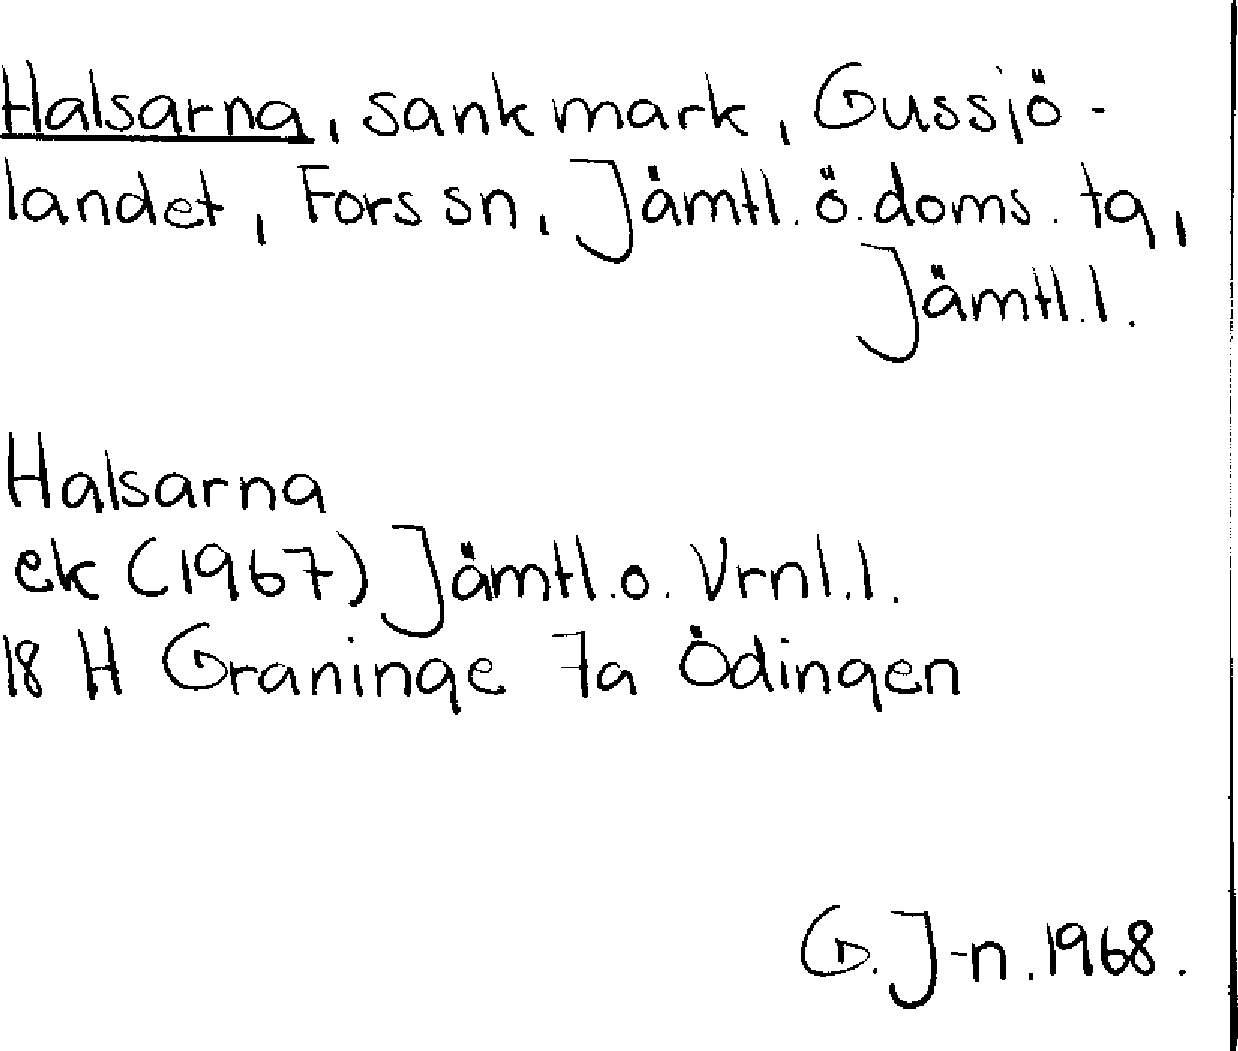 Halsarna, sank mark, Gussjö-
landet, Fors sn, Jämtl. ö. doms. tg,
Jämtl. l.
Halsarna
ek (1967) Jämtl. o. Vrnl. l.
18 H Graninge 7a Ödingen
G. J-n. 1968.